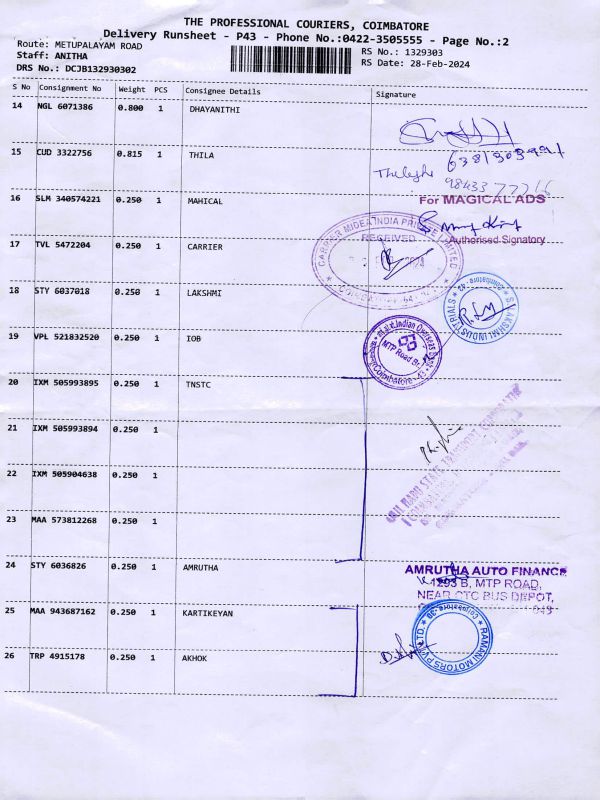 THE PROFESSIONAL COURIERS, COIMBATORE
Delivery Runsheet - P43 - Phone No.:0422-3505555 - Page No.:2
Route: METUPALAYAM ROAD
RS No.: 1329303
Staff: ANITHA
RS Date: 28-Feb-2024
DRS No.: DCJB132930302
S No Consignment No Weight PCS Consignee Details Signature
14 NGL 6071386 0.800 1 DHAYANITHI
6381303991
15 CUD 3322756 0.815 1 THILA
98433 77216
16 SLM 340574221 0.250 1 MAHICAL
For MAGICAL ADS
Authorised Signatory
17 TVL 5472204 0.250 1 CARRIER
CARRIER MIDEA INDIA PRIVATE LIMITED
RECEIVED
2024
18 STY 6037018 0.250 1 LAKSHMI
LAKSHMI INDUSTRIALS
19 VPL 521832520 0.250 1 IOB
Indian Overseas Bank
MTP Road Br.
Coimbatore - 43
20 IXM 505993895 0.250 1 TNSTC
21 IXM 505993894 0.250 1
22 IXM 505904638 0.250 1
23 MAA 573812268 0.250 1
24 STY 6036826 0.250 1 AMRUTHA
AMRUTHA AUTO FINANCE
1293 B, MTP ROAD,
NEAR CTC BUS DEPOT,
25 MAA 943687162 0.250 1 KARTIKEYAN
RAMANI MOTORS PVT LTD.
26 TRP 4915178 0.250 1 AKHOK